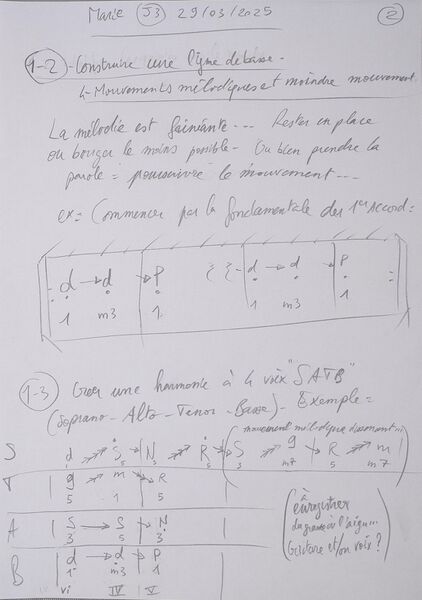 Marie J3 29/03/2025 2
1-2 - Construire une ligne de basse -
↳ Mouvements mélodiques et moindre mouvement.
La mélodie est fainiante ... Rester en place
ou bouger le moins possible - Ou bien prendre la
parole = poursuivre le mouvement ...
ex = Commencer par la fondamentale du 1er Accord =
d → d → P d → d → P
1 m3 1 1 m3 1
1-3 Créer une harmonie à 4 voix "SATB"
(Soprano - Alto - Tenor - Basse) - Exemple =
(mouvement mélodique
S d S N R S g R m
5 5 5 3 m7 5 m7
T g m R
5 1 5
A S S N
3 5 3
B d d P
1 m3 1
vi IV V
(enregistrer
du grave à l'aigu ...
Guitare et/ou voix ?)